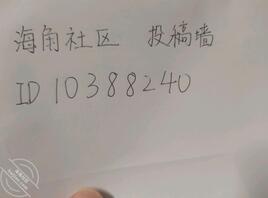 海角社区 投稿墙
ID 10388240